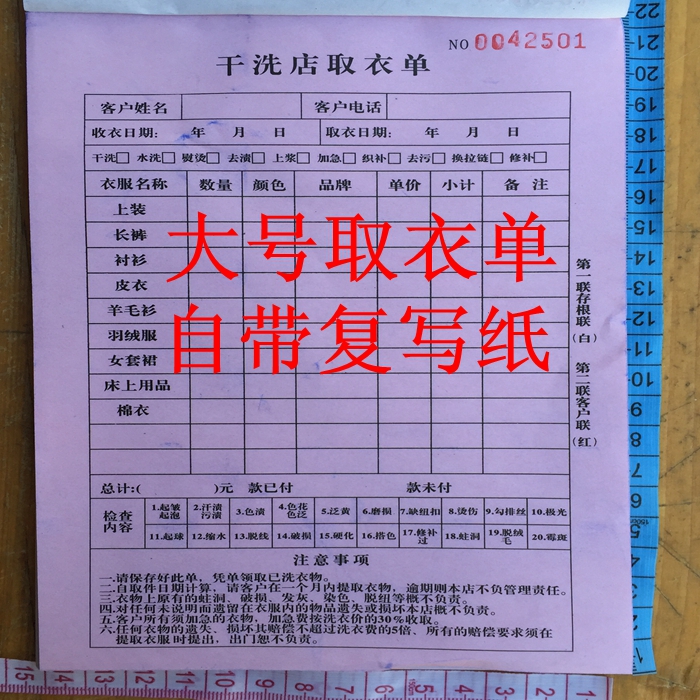 NO 0042501
干洗店取衣单
客户姓名 客户电话
收衣日期: 年 月 日 取衣日期: 年 月 日
干洗□ 水洗□ 熨烫□ 去渍□ 上浆□ 加急□ 织补□ 去污□ 换拉链□ 修补□
衣服名称 数量 颜色 品牌 单价 小计 备注
上装
长裤
衬衫
皮衣
羊毛衫
羽绒服
女套裙
床上用品
棉衣
大号取衣单
自带复写纸
第一联存根联(白) 第二联客户联(红)
总计:( )元 款已付 款未付
检查内容
1.起皱起泡 2.汗渍污渍 3.色渍 4.色花色泛 5.泛黄 6.磨损 7.缺纽扣 8.烫伤 9.勾排丝 10.极光
11.起球 12.缩水 13.脱线 14.破损 15.硬化 16.搭色 17.修补过 18.蛀洞 19.脱绒毛 20.霉斑
注意事项
一.请保存好此单，凭单领取已洗衣物。
二.自取件日期计算，请客户在一个月内提取衣物，逾期则本店不负管理责任。
三.衣物上原有的蛀洞、破损、发灰、染色、脱纽等概不负责。
四.对任何未说明而遗留在衣服内的物品遗失或损坏本店概不负责。
五.客户所有须加急的衣物，加急费按洗衣价的30%收取。
六.任何衣物的遗失、损坏其赔偿不超过洗衣费的5倍、所有的赔偿要求须在
提取衣服时提出，出门恕不负责。
22
21
20
19
18
17
16
15
14
13
12
11
10
9
8
7
6
5
15
14
13
12
11
10
9
8
7
6
5
4
3
2
1